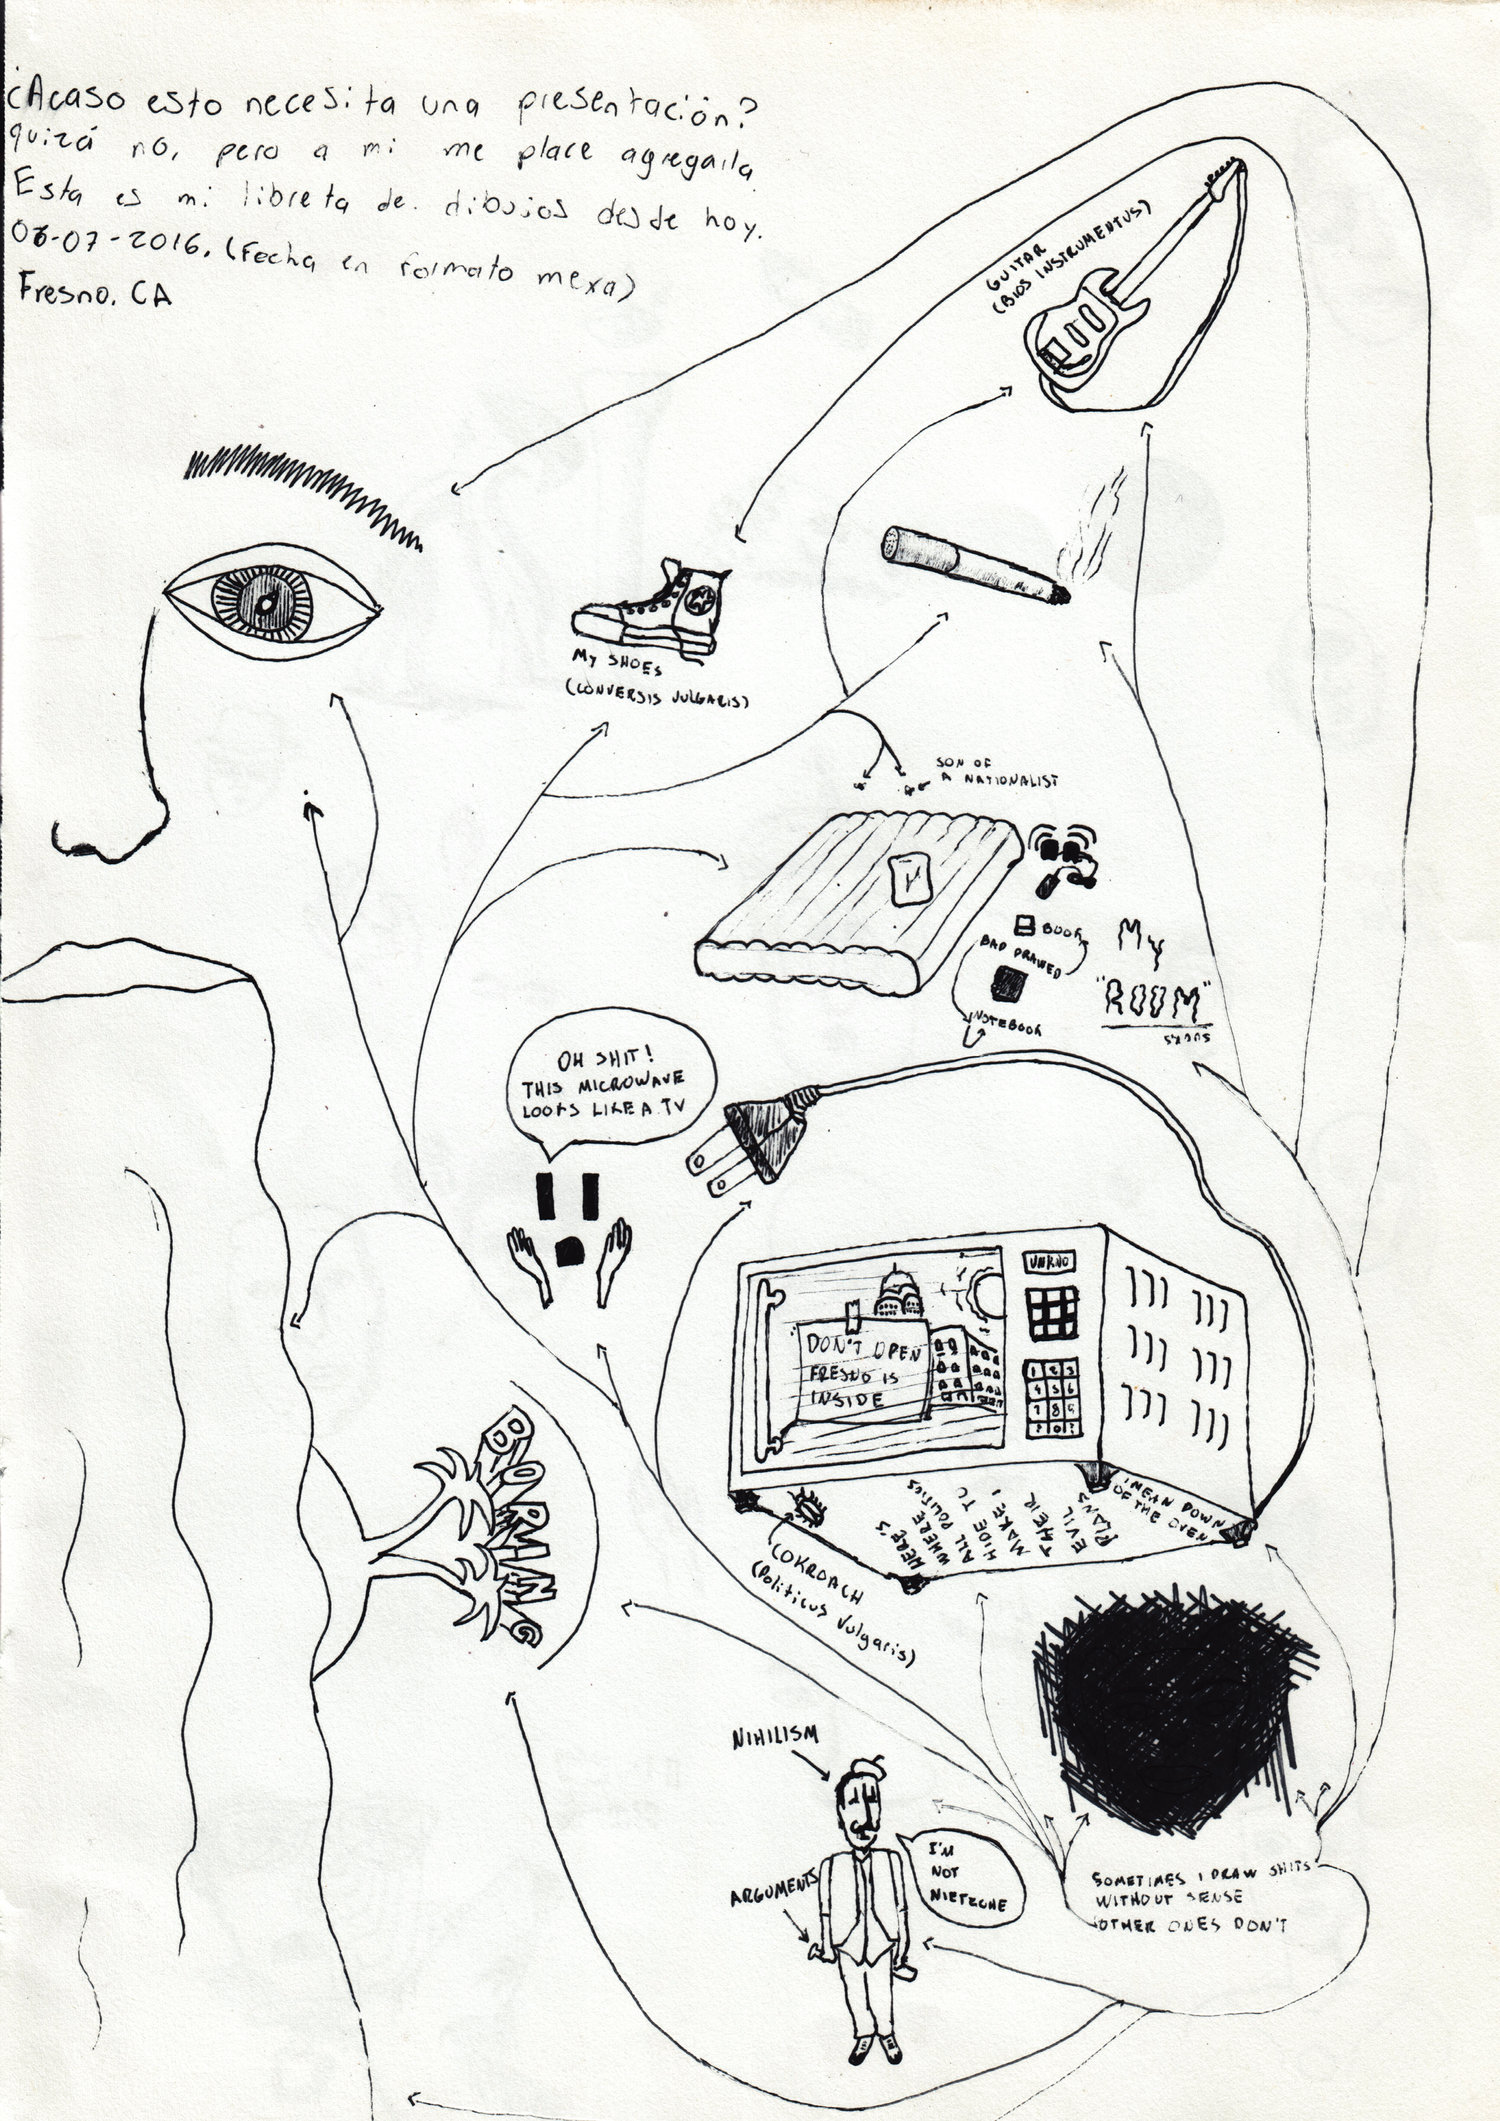 ¿Acaso esto necesita una presentación?
quizá no, pero a mi me place agregarla
Esta es mi libreta de dibujos desde hoy.
06-07-2016. (Fecha en formato mexa)
Fresno. CA
GUITAR
(BIOS INSTRUMENTUS)
MY SHOES
(CONVERSIS VULGARIS)
SON OF
A NATIONALIST
BOOK
BAD DRAWED
NOTEBOOK
MY
"ROOM"
SUCKS
OH SHIT!
THIS MICROWAVE
LOOKS LIKE A TV
DON'T OPEN
FRESNO IS
INSIDE
1 2 3
4 5 6
7 8 9
? 0 ?
BOORMING
HERE'S
WHERE
ALL POLITICS
HIDE TO
MAKE
THEIR
EVIL
PLANS
I MEAN DOWN
OF THE OVEN
COKROACH
(Politicus Vulgaris)
NIHILISM
ARGUMENTS
I'M
NOT
NIETZCHE
SOMETIMES I DRAW SHITS
WITHOUT SENSE
OTHER ONES DON'T